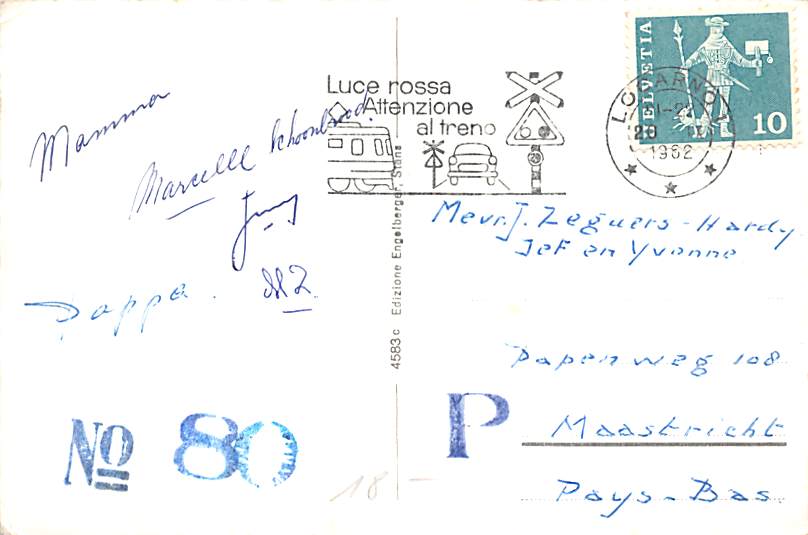 Mamma
Marcelle Schoonbrood.
Jung
Pappa. MZ.
No 80
18 -
4583 c Edizione Engelberger, Stans
Luce rossa
Attenzione
al treno
LOCARNO 1
1962
HELVETIA
10
Mevr. J. Zeguers-Hardy
Jef en Yvonne
P
Papenweg 108
Maastricht
Pays-Bas.